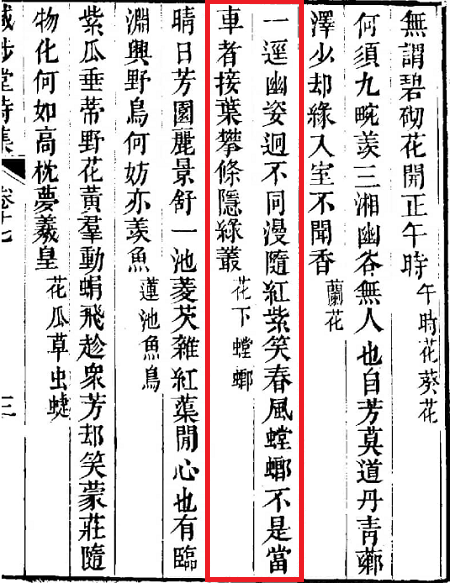 無謂碧砌花開正午時　午時花葵花
何須九畹羨三湘幽谷無人也自芳莫道丹青薌
澤少却緣入室不聞香　蘭花
一逕幽姿迥不同漫隨紅紫笑春風螳螂不是當
車者接葉攀條隱綠叢　花下螳螂
晴日芳園麗景舒一池菱芡雜紅蕖閒心也有臨
淵興野鳥何妨亦羨魚　蓮池魚鳥
紫瓜垂蒂野花黃羣動蜎飛趁衆芳却笑蒙莊隨
物化何如高枕夢羲皇　花瓜草虫蜨
堂詩集　卷十七　三